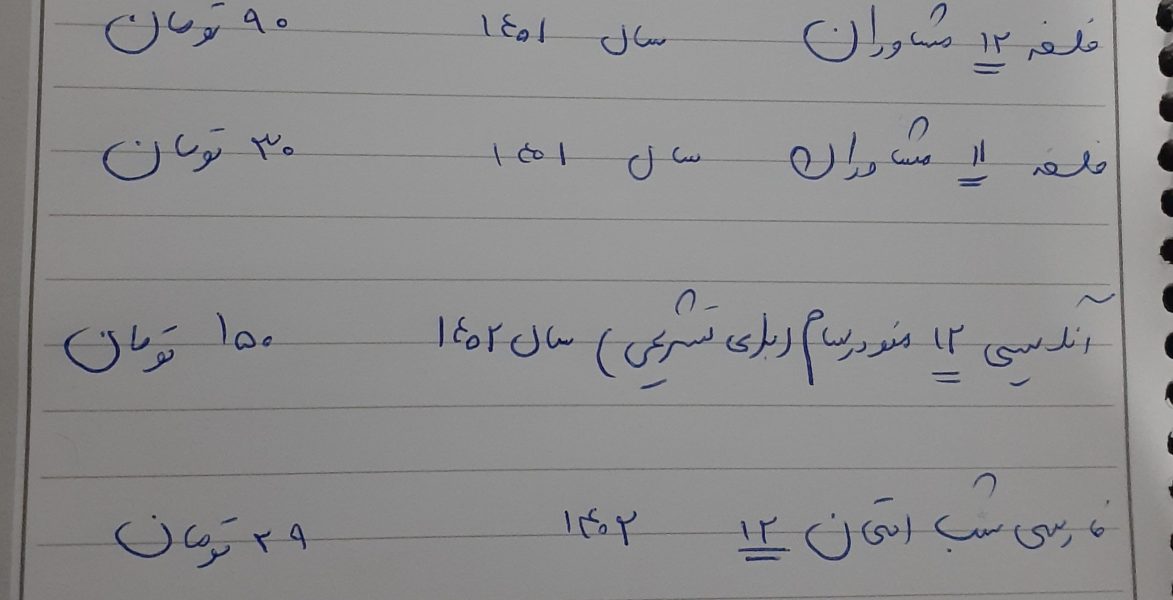 فلسفه ۱۲ مشاوران سال ۱۴۰۱ ۹۰ تومان
فلسفه ۱۱ مشاوران سال ۱۴۰۱ ۳۰ تومان
۱۲ (برای تشریحی) سال ۱۴۰۲ ۱۵۰ تومان
فارسی شب امتحان ۱۲ ۱۴۰۲ ۲۹ تومان